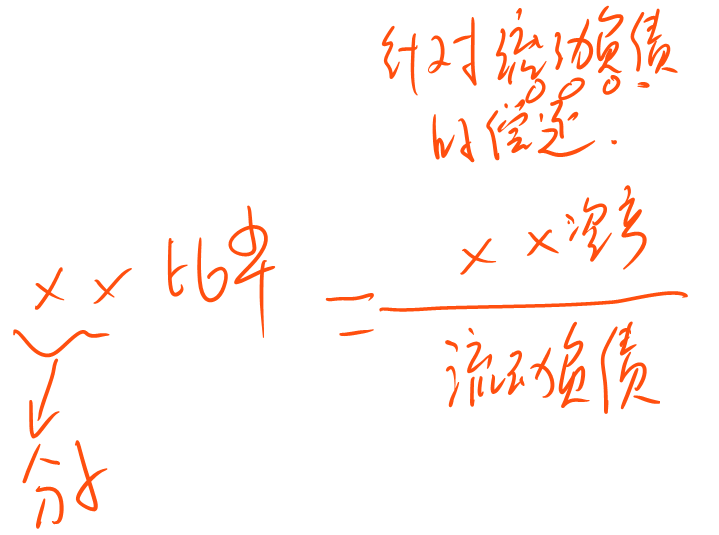 针对流动负债
的偿还.
×× 比率 = ××资产
流动负债
分子